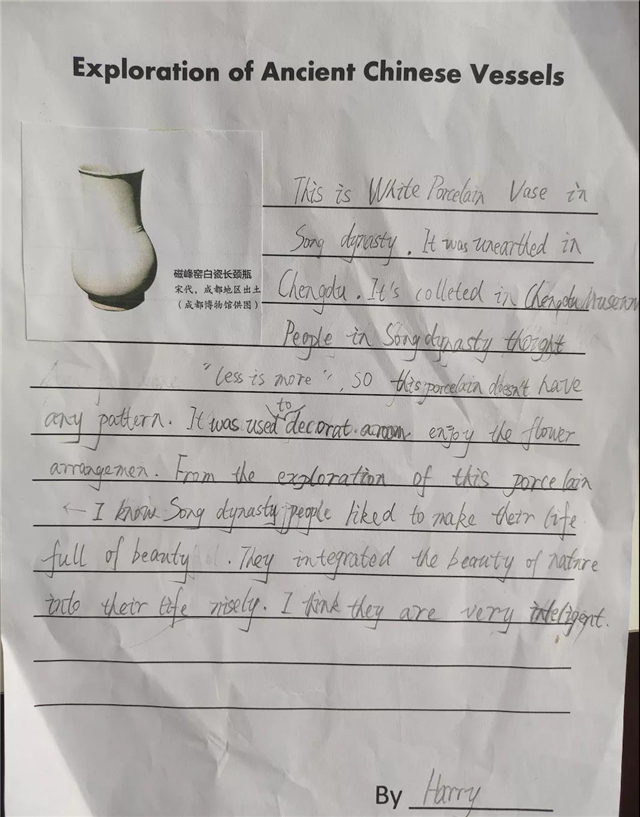 Exploration of Ancient Chinese Vessels
磁峰窑白瓷长颈瓶
宋代，成都地区出土
（成都博物馆供图）
This is White Porcelain Vase in
Song dynasty. It was unearthed in
Chengdu. It's colleted in Chengdu Museum
People in Song dynasty thought
"less is more", so this porcelain doesn't have
any pattern. It was used to decorat a room. enjoy the flower
arrangemen. From the exploration of this porcelain
← I know Song dynasty people liked to make their life
full of beauty. They integrated the beauty of nature
into their life nisely. I think they are very inteligent.
By Harry